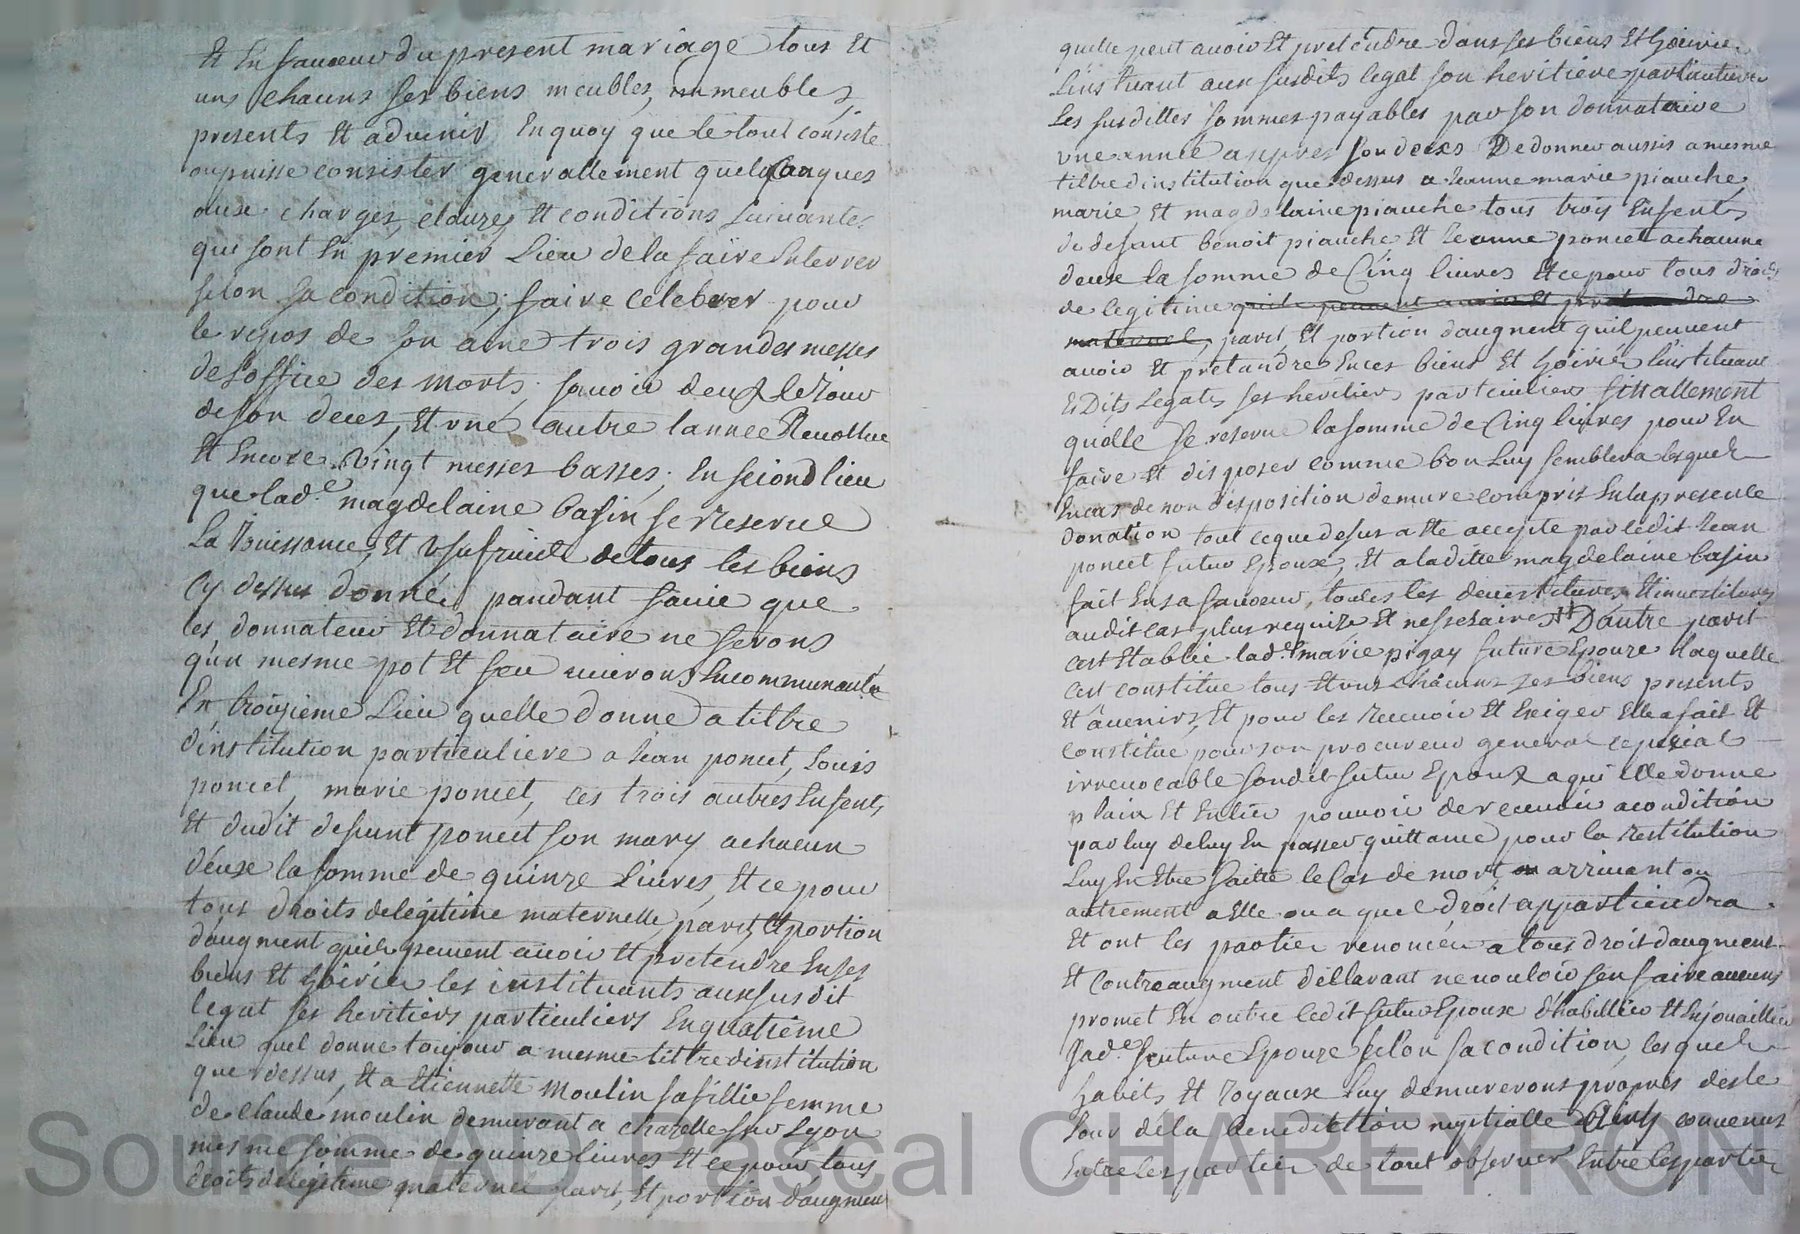 Et En faueur du present mariage tous Et
uns chacuns ses biens meubles, immeubles,
presents Et aduenir En quoy que le tout consiste
ou puisse consister generallement quelqConques
aux charges, clauzes Et conditions suiuantes
qui sont En premier Lieu de la faire Enterrer
selon sa condition; faire celebrer pour
le repos de son ame trois grandes messes
de Loffice des morts, sauoir deux le Jour
de son deces, Et vne autre lannee Reuollue
Et Encore vingt messes basses; En second lieu
que lad.e magdelaine basin se reserue
La Jouissance, Et Vsufruict de tous les biens
Cy dessus donnés pandant sa uie que
les donnateur Et donnataire ne serons
qu'un mesme pot Et feu uiurons En communauté
En troizieme Lieu quelle donne a tiltre
d'institution particuliere a Jean poncet, Louis
poncet, marie poncet, ces trois autres Enfents
Et dudit defunt poncet son mary a chacun
d'eux la somme de quinze Liures, Et ce pour
tous droits de legitime maternelle, part, Et portion
daugment quils peuuent auoir Et pretendre En ses
biens Et hoirie les instituants aux susdit
legat ses heritiers particuliers En quatrieme
Lieu quel donne toujour a mesme tiltre dinstitution
que dessus, Et a Etiennette Moulin sa fillie femme
de Claude moulin demurant a chazelle sur Lyon
mesme somme de quinze liures Et ce pour tous
droits de legitime maternel part, Et portion daugment
quelle peut auoir Et pretendre dans ses biens Et hoirie
Linstituant aux susdits legat son heritiere particuliere
Les susdittes sommes payables par son donnataire
vne année aspres son deces De donner aussis a mesme
tiltre d'institution que dessus a Jeanne marie piauche,
marie, Et magdelaine piauche tous trois Enfents
de defunt benoit piauche Et Jeanne poncet a chacune
deux la somme de Cinq liures Et ce pour tous droits
de legitime quils peuuent auoir Et pretendre
maternel, part, Et portion daugment quil peuuent
auoir Et pretandres En ces biens Et hoirie, Linstituant
Es Dits Legats ses heritiers particuliers finallement
quelle se reserue la somme de Cinq liures pour En
faire Et disposer comme bon Luy semblera lesquels
En cas de non disposition demure compris En la presente
donation tout ce que desus a Ete accepte par ledit Jean
poncet futur Epoux, Et a laditte magdelaine basin
fait En sa faueur, toutes les deuestitures, Et inuestitures
audit cas plus requize Et nessesaires # D'autre part
cest Etablie lad.e marie pigay future Epouze Laquelle
cest constitue tous Et uns chacuns ses biens presents
Et auenirs, Et pour les receuoir Et Exiger Elle a fait Et
constitue pour son procureur general especial
irreuocable sondit futur Epoux a qui elle donne
plain Et Entier pouuoir de receuoir a condition
par luy de luy En passer quittance pour la restitution
Luy En Etre faitte le Cas de mort arriuant ou
autrement a Elle ou a quel droit appartiendra.
Et ont les partier renoncées a tous droit daugment
Et Contreaugment dellarant ne uouloir sen faire aucuns
promet En outre ledit futur Epoux dhabillier Et Enjouaillier
lad.e future Epouze selon sa condition, lesquels
habits Et Joyaux Luy demurerons propres desle
Jour de la benediction nuptialle Ainsy conuenus
Entre les partier de tout obseruer Entre les partier
Source AD Pascal CHAREYRON